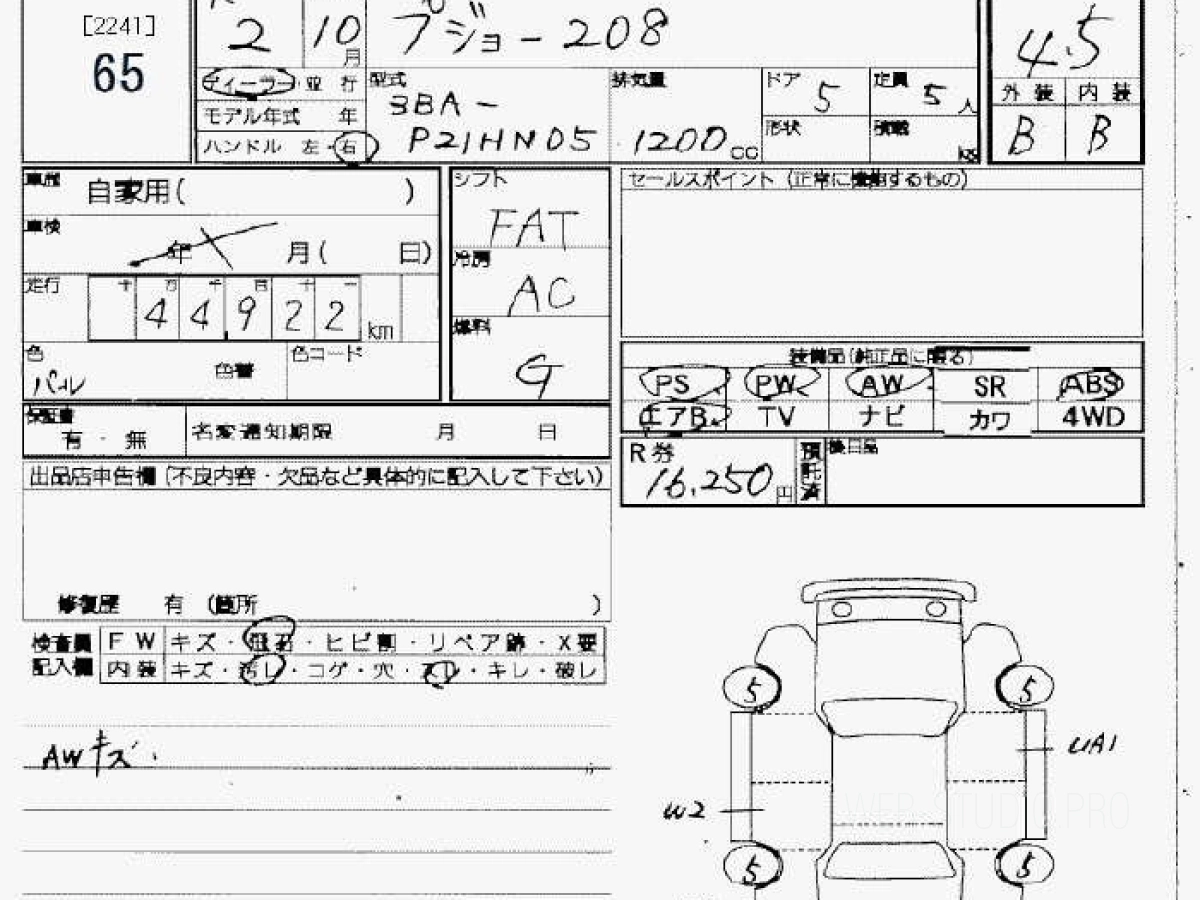 [2241]
65
2 10月
プジョー 208
4.5
ディーラー・並行
型式 3BA-P21HN05
排気量 1200cc
ドア 5
定員 5人
外装 内装
B B
モデル年式 年
形状
積載 kg
ハンドル 左・右
車歴 自家用( )
シフト FAT
セールスポイント (正常に機能するもの)
車検 年 月( 日)
冷房 AC
走行 十万千百十一
44,922 km
燃料 G
色 パール
色替
色コード
装備品(純正品に限る)
PS PW AW SR ABS
エアB TV ナビ カワ 4WD
保証書 有・無
名変通知期限 月 日
R券 16,250円
預託済
後日品
出品店申告欄 (不良内容・欠品など具体的に記入して下さい)
修復歴 有 (箇所 )
検査員記入欄
FW キズ・飛石・ヒビ割・リペア跡・X要
内装 キズ・汚レ・コゲ・穴・スレ・キレ・破レ
AWキズ
5 5
UA1
W2
5 5
WEB STUDIO PRO